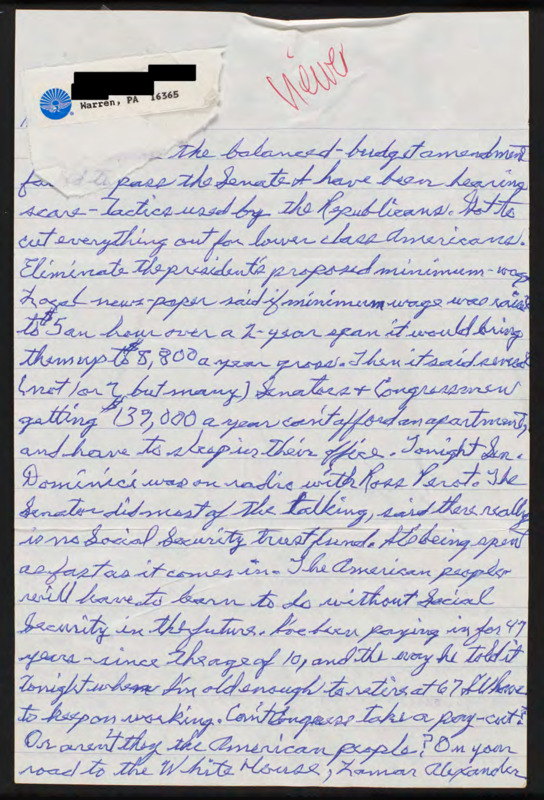 viewer
Warren, PA 16365
the balanced-budget amendment
to pass the Senate I have been hearing
scare-tactics used by the Republicans. Got to
cut everything out for lower class Americans.
Eliminate the president's proposed minimum-wage
Local news-paper said if minimum wage was raised
to $5 an hour over a 2-year span it would bring
them up to $8,800 a year gross. Then it said several
[not 1 or 2, but many] Senators + Congressmen
getting $139,000 a year can't afford an apartment,
and have to sleep in their office. Tonight Sen.
Dominici was on radio with Ross Perot. The
Senator did most of the talking, said there really
is no Social Security trust fund. It's being spent
as fast as it comes in. The American people
will have to learn to do without Social
Security in the future. I've been paying in for 47
years - since the age of 10, and the way he told it
tonight when I'm old enough to retire at 67 I'll have
to keep on working. Can't Congress take a pay-cut?
Or aren't they the American people? On your
road to the White House, Lamar Alexander